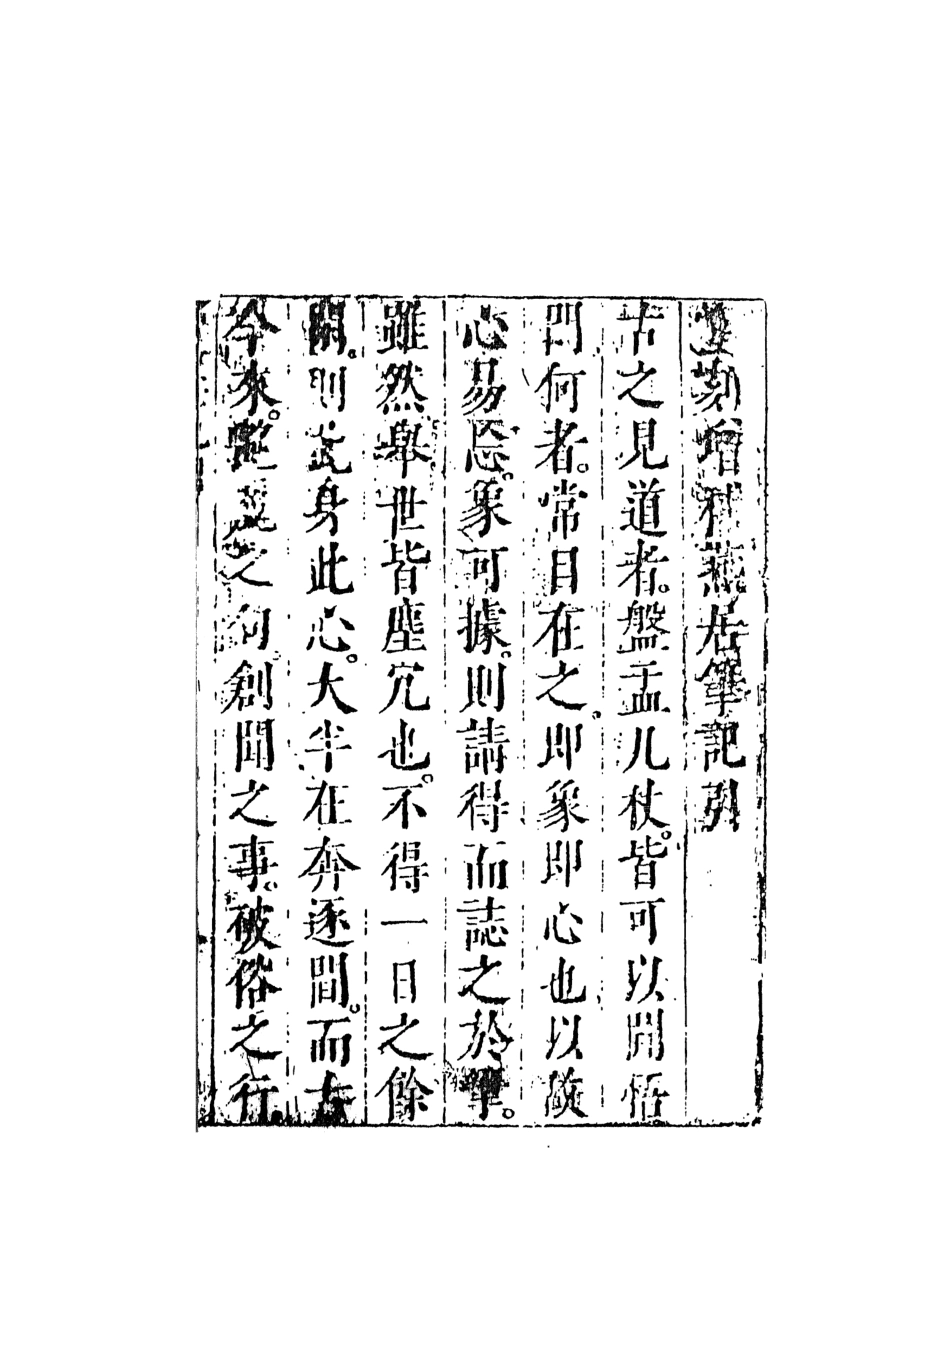 刻增補燕居筆記引
古之見道者。盤盂几杖。皆可以開悟
問何者。常目在之。即象即心也以故
心易忘。象可據。則請得而誌之於筆。
雖然舉世皆塵冗也。不得一日之餘
閒。則此身此心。大半在奔逐間。而古
今來。之句創聞之事。被俗之行